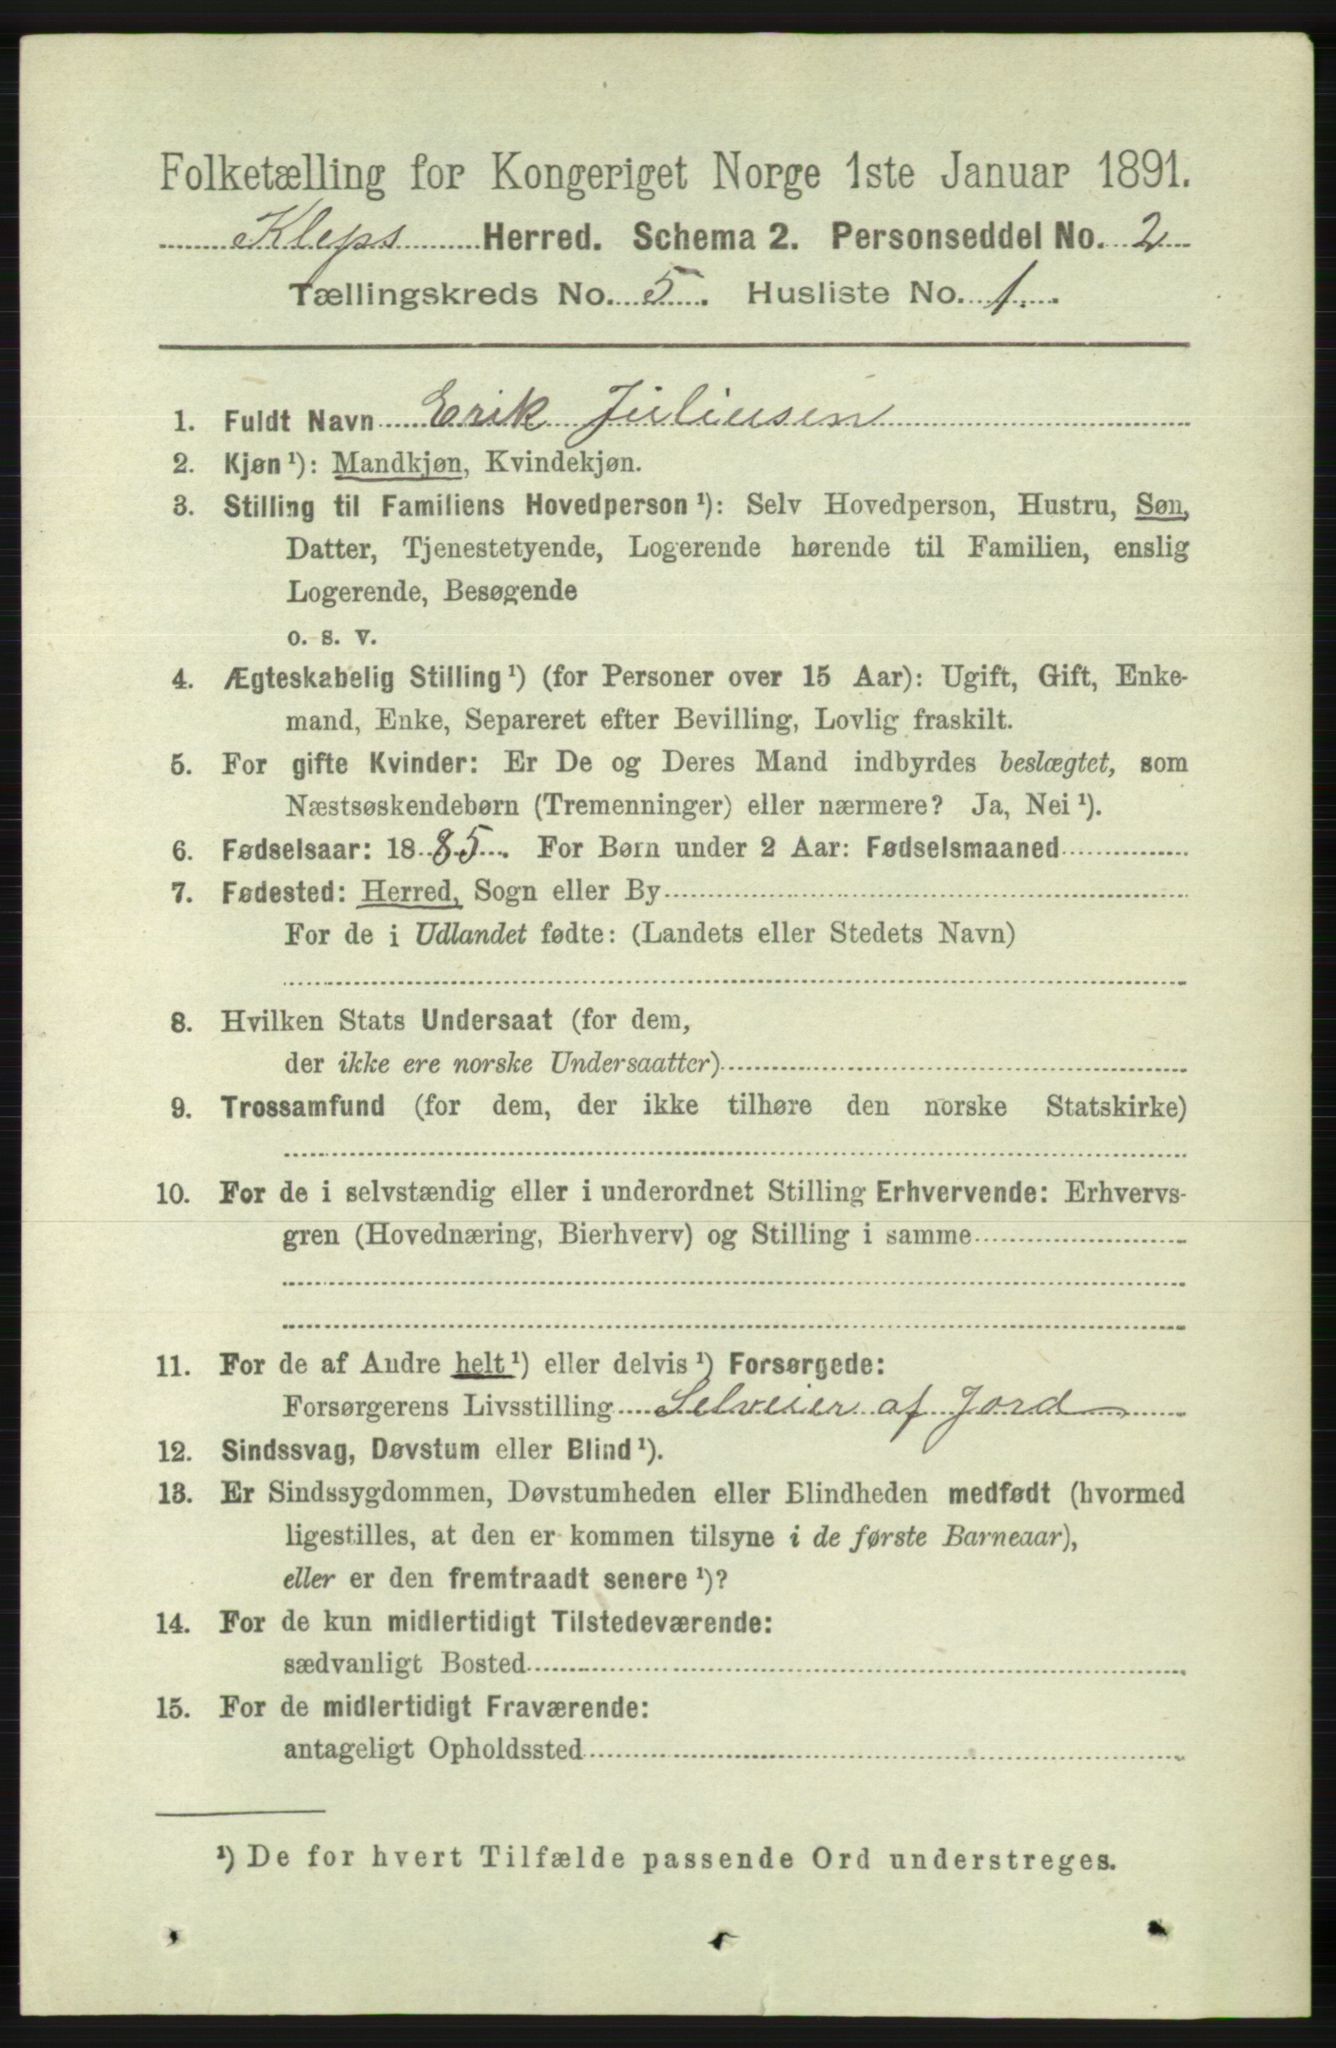 Folketælling for Kongeriget Norge 1ste Januar 1891.
Kleps Herred. Schema 2. Personseddel No. 2
Tællingskreds No. 5. Husliste No. 1.
1. Fuldt Navn Erik Juliusen
2. Kjøn ¹): Mandkjøn, Kvindekjøn.
3. Stilling til Familiens Hovedperson ¹): Selv Hovedperson, Hustru, Søn,
Datter, Tjenestetyende, Logerende hørende til Familien, enslig
Logerende, Besøgende
o. s. v.
4. Ægteskabelig Stilling ¹) (for Personer over 15 Aar): Ugift, Gift, Enke-
mand, Enke, Separeret efter Bevilling, Lovlig fraskilt.
5. For gifte Kvinder: Er De og Deres Mand indbyrdes beslægtet, som
Næstsøskendebørn (Tremenninger) eller nærmere? Ja, Nei ¹).
6. Fødselsaar: 1885. For Børn under 2 Aar: Fødselsmaaned
7. Fødested: Herred, Sogn eller By
For de i Udlandet fødte: (Landets eller Stedets Navn)
8. Hvilken Stats Undersaat (for dem,
der ikke ere norske Undersaatter)
9. Trossamfund (for dem, der ikke tilhøre den norske Statskirke)
10. For de i selvstændig eller i underordnet Stilling Erhvervende: Erhvervs-
gren (Hovednæring, Bierhverv) og Stilling i samme
11. For de af Andre helt ¹) eller delvis ¹) Forsørgede:
Forsørgerens Livsstilling Selveier af Jord
12. Sindssvag, Døvstum eller Blind ¹).
13. Er Sindssygdommen, Døvstumheden eller Blindheden medfødt (hvormed
ligestilles, at den er kommen tilsyne i de første Barneaar),
eller er den fremtraadt senere ¹)?
14. For de kun midlertidigt Tilstedeværende:
sædvanligt Bosted
15. For de midlertidigt Fraværende:
antageligt Opholdssted
¹) De for hvert Tilfælde passende Ord understreges.